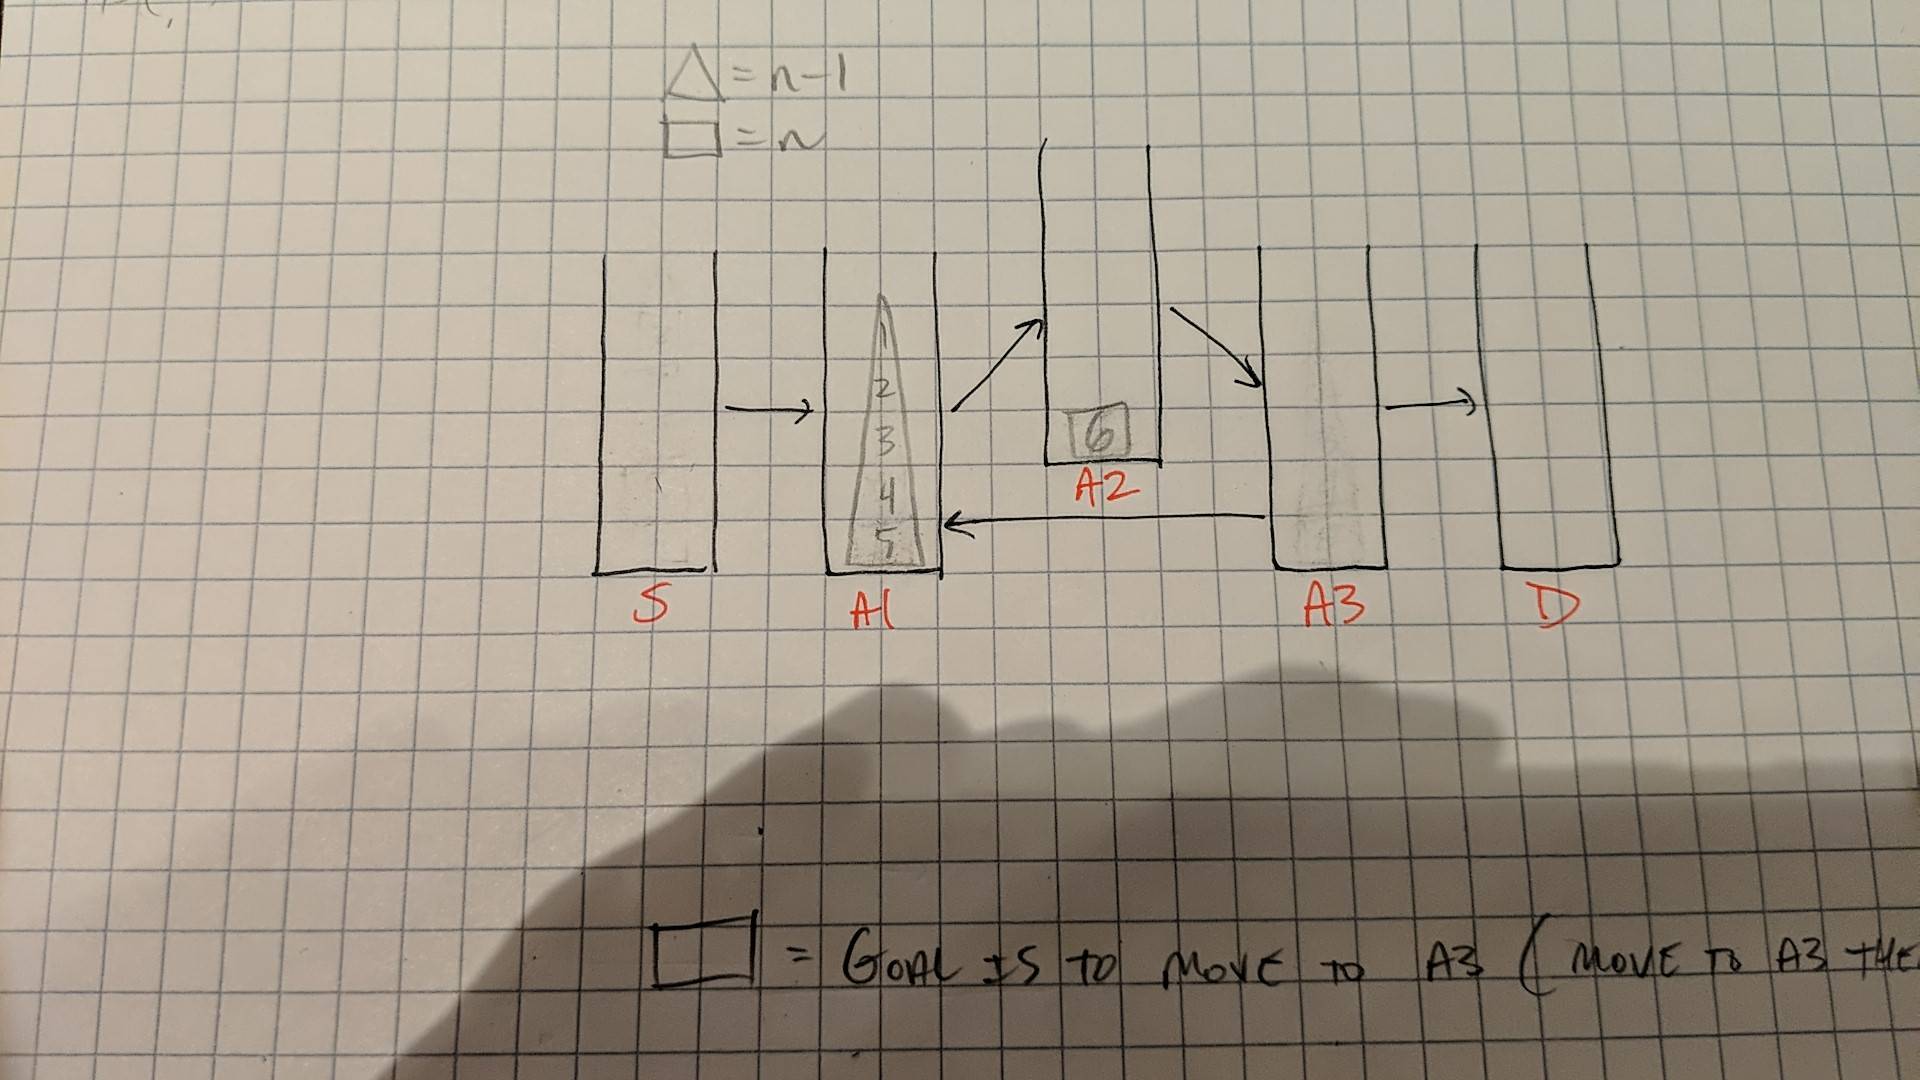 △ = n-1
□ = n
1
2
3
4
5
6
A2
S
A1
A3
D
□ = GOAL IS TO MOVE TO A3 (MOVE TO A3 THE